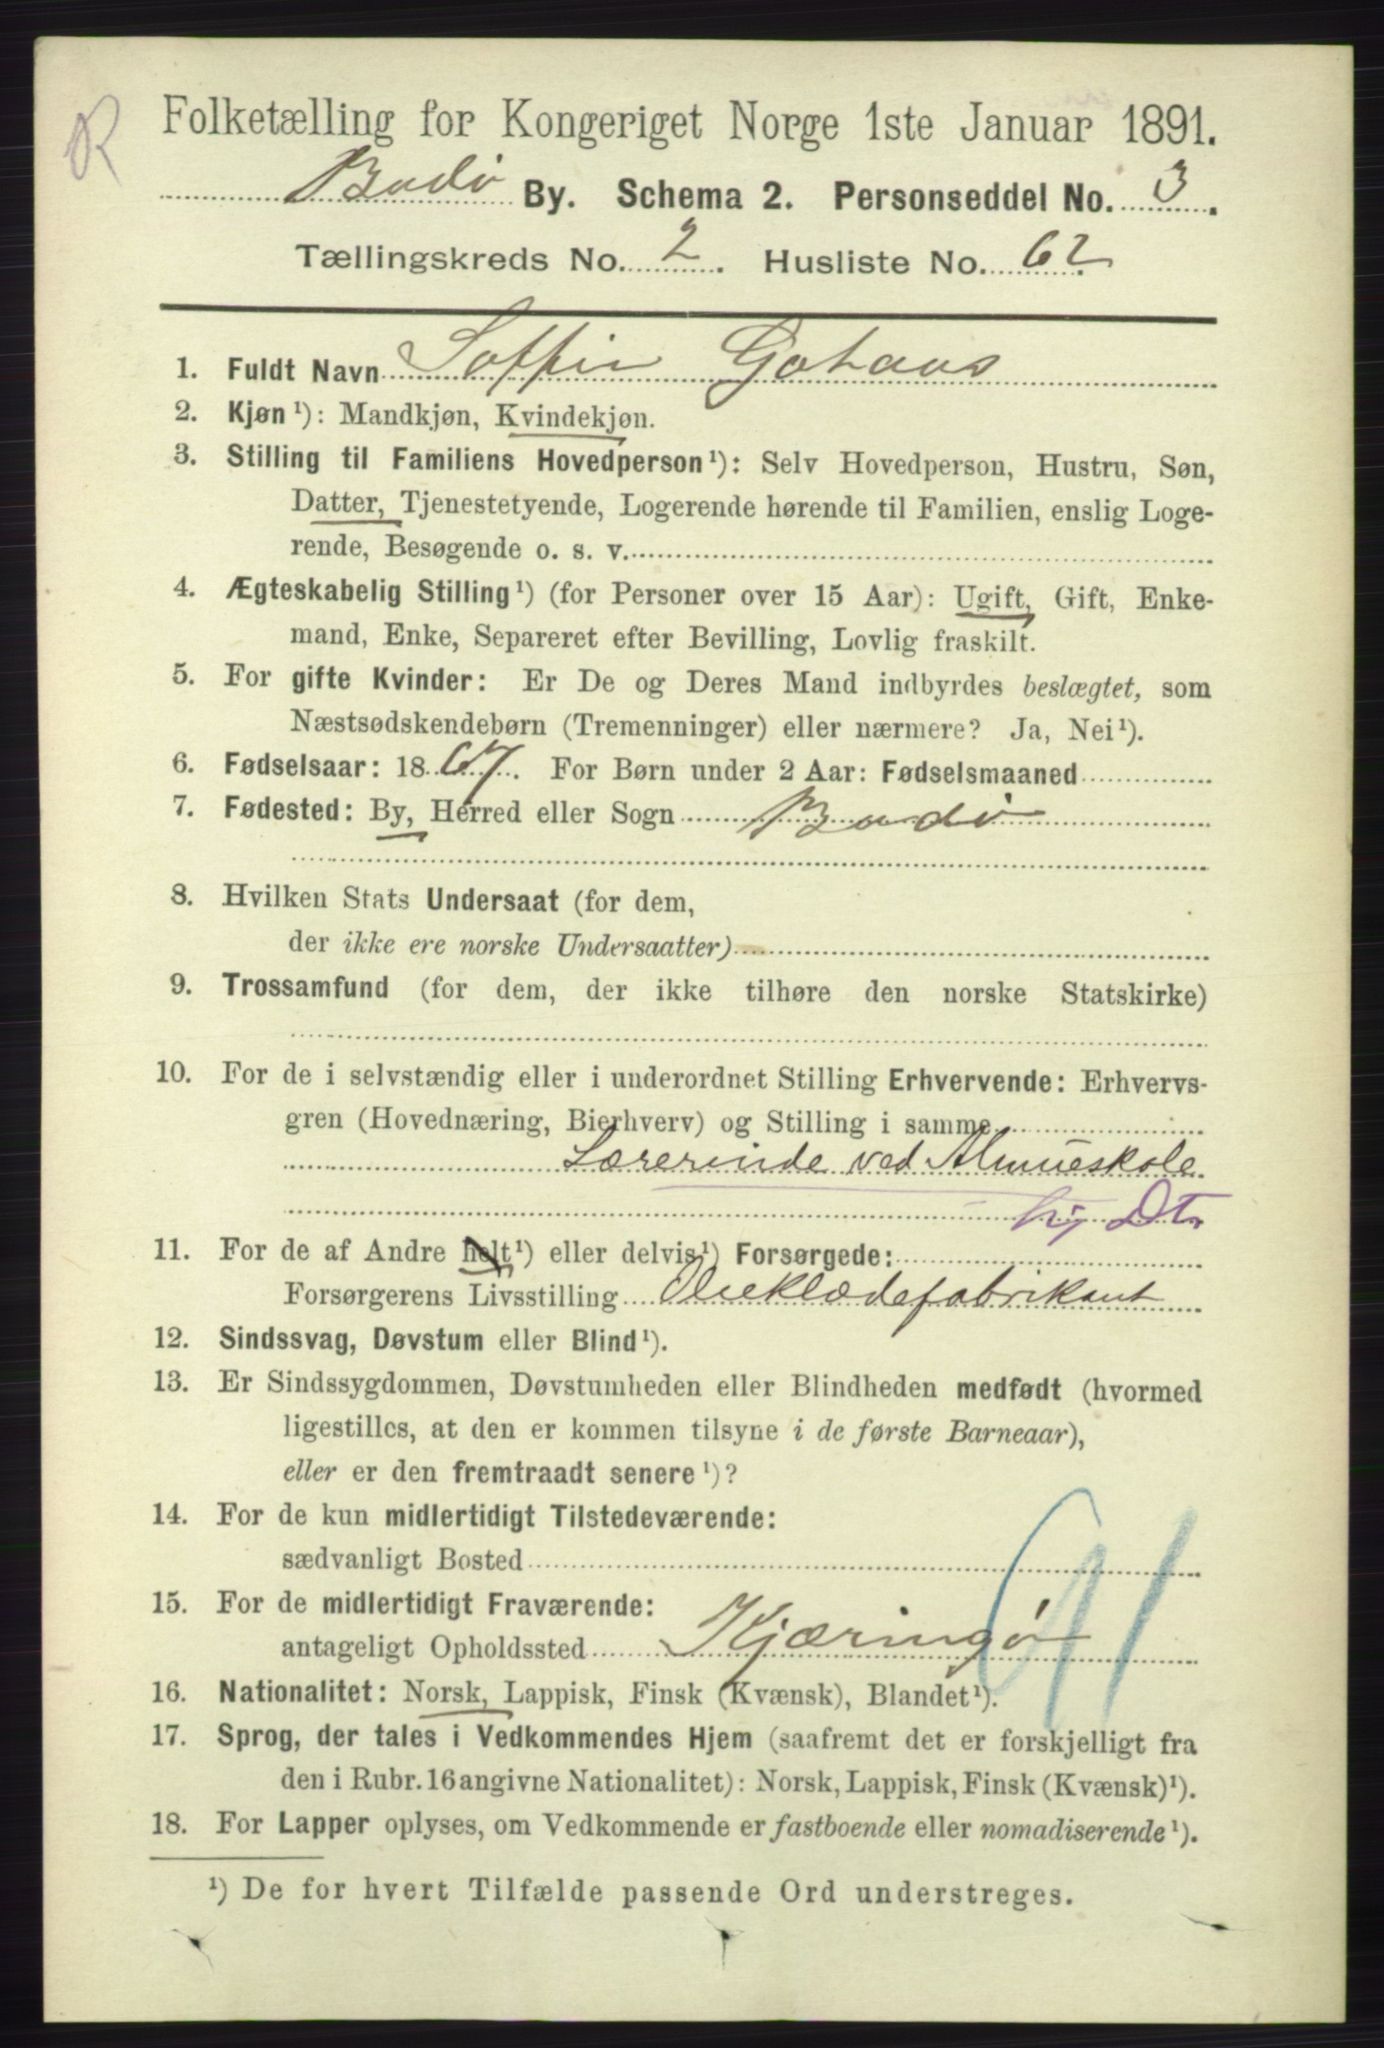 R
Folketælling for Kongeriget Norge 1ste Januar 1891.
Bodø By. Schema 2. Personseddel No. 3.
Tællingskreds No. 2. Husliste No. 62
1. Fuldt Navn Soffie Gahaus
2. Kjøn ¹): Mandkjøn, Kvindekjøn.
3. Stilling til Familiens Hovedperson ¹): Selv Hovedperson, Hustru, Søn,
Datter, Tjenestetyende, Logerende hørende til Familien, enslig Loge-
rende, Besøgende o. s. v.
4. Ægteskabelig Stilling ¹) (for Personer over 15 Aar): Ugift, Gift, Enke-
mand, Enke, Separeret efter Bevilling, Lovlig fraskilt.
5. For gifte Kvinder: Er De og Deres Mand indbyrdes beslægtet, som
Næstsødskendebørn (Tremenninger) eller nærmere? Ja, Nei ¹).
6. Fødselsaar: 1867. For Børn under 2 Aar: Fødselsmaaned
7. Fødested: By, Herred eller Sogn Bodø
8. Hvilken Stats Undersaat (for dem,
der ikke ere norske Undersaatter)
9. Trossamfund (for dem, der ikke tilhøre den norske Statskirke)
10. For de i selvstændig eller i underordnet Stilling Erhvervende: Erhvervs-
gren (Hovednæring, Bierhverv) og Stilling i samme
Lærerinde ved Almueskole
Dt.
11. For de af Andre helt ¹) eller delvis ¹) Forsørgede:
Forsørgerens Livsstilling Olieklædefabrikant
12. Sindssvag, Døvstum eller Blind ¹).
13. Er Sindssygdommen, Døvstumheden eller Blindheden medfødt (hvormed
ligestilles, at den er kommen tilsyne i de første Barneaar),
eller er den fremtraadt senere ¹)?
14. For de kun midlertidigt Tilstedeværende:
sædvanligt Bosted
15. For de midlertidigt Fraværende:
antageligt Opholdssted Kjæringø
16. Nationalitet: Norsk, Lappisk, Finsk (Kvænsk), Blandet ¹).
17. Sprog, der tales i Vedkommendes Hjem (saafremt det er forskjelligt fra
den i Rubr. 16 angivne Nationalitet): Norsk, Lappisk, Finsk (Kvænsk) ¹).
18. For Lapper oplyses, om Vedkommende er fastboende eller nomadiserende ¹).
¹) De for hvert Tilfælde passende Ord understreges.